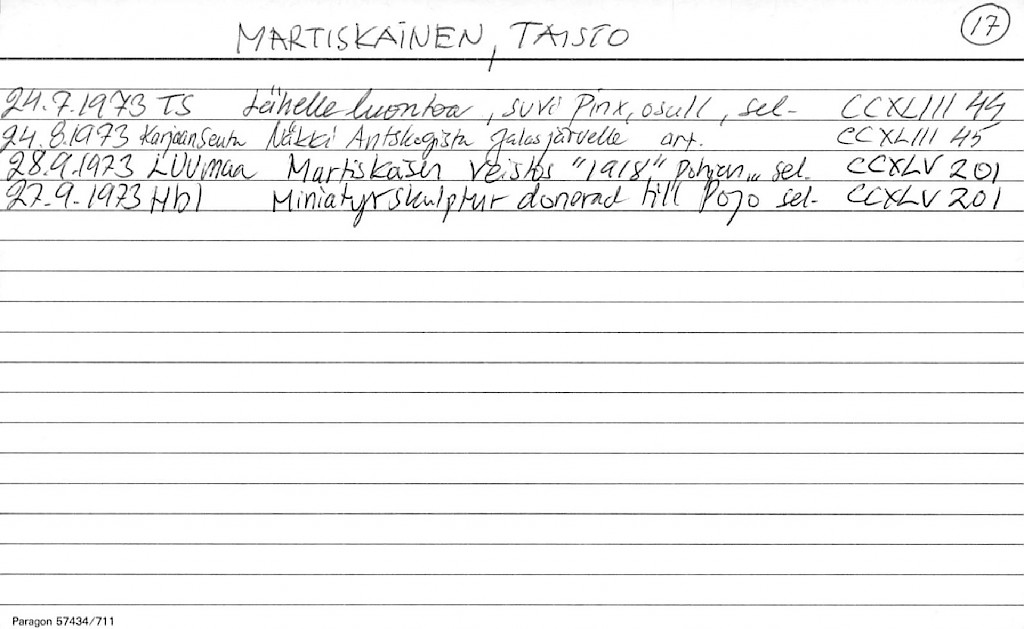 MARTISKAINEN, TAISTO
17
24.7.1973 TS Lähelle luontoa, suvi Pinx, osull, sel- CCXLIII 44
24.8.1973 Karjaan Seutu Näkki Antskogista Jalasjärvelle art. CCXLIII 45
28.9.1973 LUUmaa Martiskaisen Veistos "1918", Pohjan,, sel. CCXLV 201
27.9.1973 Hbl Miniatyrskulptur donerad till Pojo sel- CCXLV 201
Paragon 57434/711